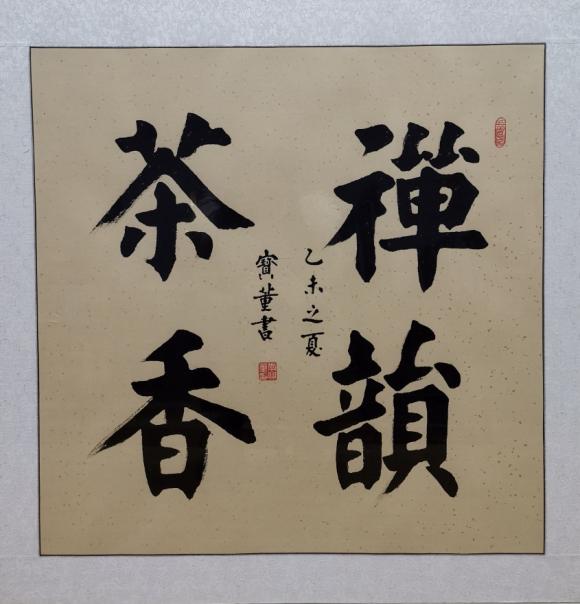 禪韻
茶香
乙未之夏
寳董書